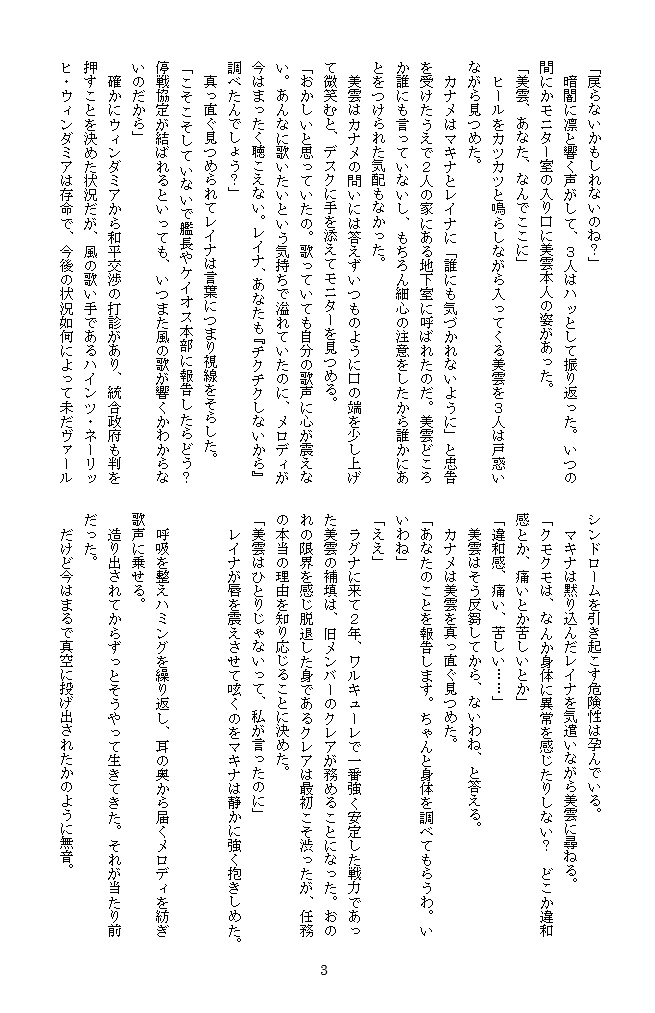 「戻らないかもしれないのね？」
　暗闇に凛と響く声がして、３人はハッとして振り返った。いつの
間にかモニター室の入り口に美雲本人の姿があった。
「美雲、あなた、なんでここに」
　ヒールをカツカツと鳴らしながら入ってくる美雲を３人は戸惑い
ながら見つめた。
　カナメはマキナとレイナに「誰にも気づかれないように」と忠告
を受けたうえで２人の家にある地下室に呼ばれたのだ。美雲どころ
か誰にも言っていないし、もちろん細心の注意をしたから誰かにあ
とをつけられた気配もなかった。
　美雲はカナメの問いには答えずいつものように口の端を少し上げ
て微笑むと、デスクに手を添えてモニターを見つめる。
「おかしいと思っていたの。歌っていても自分の歌声に心が震えな
い。あんなに歌いたいという気持ちで溢れていたのに、メロディが
今はまったく聴こえない。レイナ、あなたも『チクチクしないから』
調べたんでしょう？」
　真っ直ぐ見つめられてレイナは言葉につまり視線をそらした。
「こそこそしていないで艦長やケイオス本部に報告したらどう？
停戦協定が結ばれるといっても、いつまた風の歌が響くかわからな
いのだから」
　確かにウィンダミアから和平交渉の打診があり、統合政府も判を
押すことを決めた状況だが、風の歌い手であるハインツ・ネーリッ
ヒ・ウィンダミアは存命で、今後の状況如何によって未だヴァール
シンドロームを引き起こす危険性は孕んでいる。
　マキナは黙り込んだレイナを気遣いながら美雲に尋ねる。
「クモクモは、なんか身体に異常を感じたりしない？　どこか違和
感とか、痛いとか苦しいとか」
「違和感、痛い、苦しい……」
　美雲はそう反芻してから、ないわね、と答える。
　カナメは美雲を真っ直ぐ見つめた。
「あなたのことを報告します。ちゃんと身体を調べてもらうわ。い
いわね」
「ええ」
　ラグナに来て２年、ワルキューレで一番強く安定した戦力であっ
た美雲の補填は、旧メンバーのクレアが務めることになった。おの
れの限界を感じ脱退した身であるクレアは最初こそ渋ったが、任務
の本当の理由を知り応じることに決めた。
「美雲はひとりじゃないって、私が言ったのに」
　レイナが唇を震えさせて呟くのをマキナは静かに強く抱きしめた。
　呼吸を整えハミングを繰り返し、耳の奥から届くメロディを紡ぎ
歌声に乗せる。
　造り出されてからずっとそうやって生きてきた。それが当たり前
だった。
　だけど今はまるで真空に投げ出されたかのように無音。
3